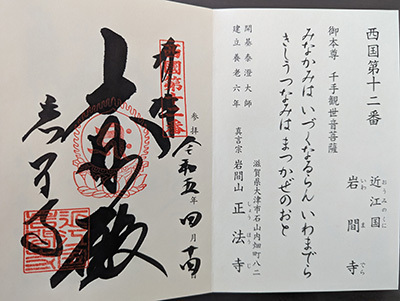 西国第十二番
近江国 岩間寺
おうみのくに いわまでら
御本尊 千手観世音菩薩
みなかみは いづくなるらん いわまでら
きしうつなみは まつかぜのおと
開基 泰澄大師
建立 養老六年
滋賀県大津市石山内畑町八二
真言宗 岩間山 正法寺
しょうほうじ
奉拝
西國第十二番
参拝 令和五年 四月 十四日
大悲殿
岩間寺